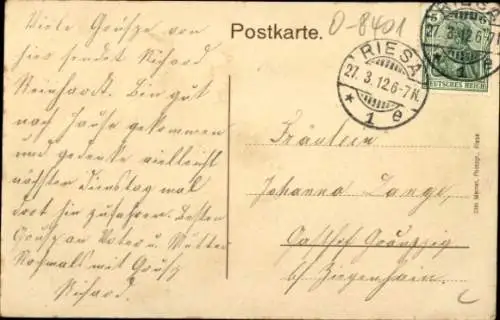 Viele Grüße von
hier sendet Richard
Reinhardt. Bin gut
nach Hause gekommen
und gedenke vielleicht
nächsten Dienstag mal
dort hin zu fahren. Besten
Gruß an Vater u. Mutter
Nochmals mit Gruß
Richard.
Postkarte.
O-8401
RIESA
27.3.12.6-7N.
* 1 e
RIESA
27.3.12.6-7N.
* 1 e
5
DEUTSCHES REICH
Fräulein
Johanna Lange,
Gasthof
b/ Ziegenhain.